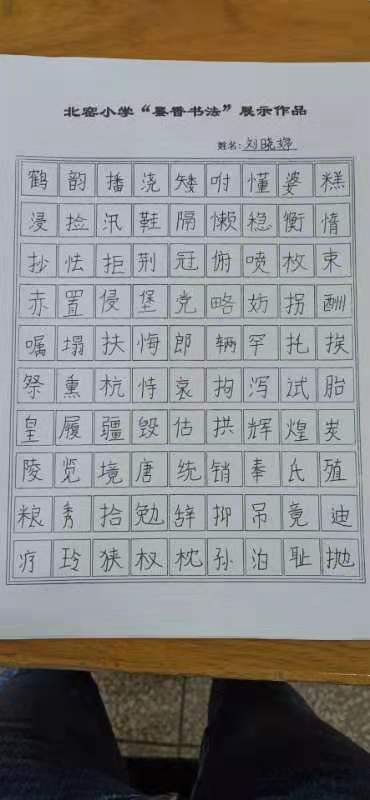 北窑小学“墨香书法”展示作品
姓名：刘晓婷
鹤 韵 播 浇 矮 咐 懂 婆 糕
浸 捡 汛 鞋 隔 懒 稳 衡 惰
抄 怯 拒 荆 冠 俯 喷 枚 束
赤 置 侵 堡 党 略 妨 拐 酬
嘱 塌 扶 悔 郎 辆 罕 扎 挨
祭 熏 杭 恃 哀 拘 泻 试 胎
皇 履 疆 毁 估 拱 辉 煌 炭
陵 览 境 唐 统 销 奉 氏 殖
粮 秀 拾 勉 辞 抑 吊 竟 迪
疗 玲 狭 权 枕 孙 泊 耻 抛